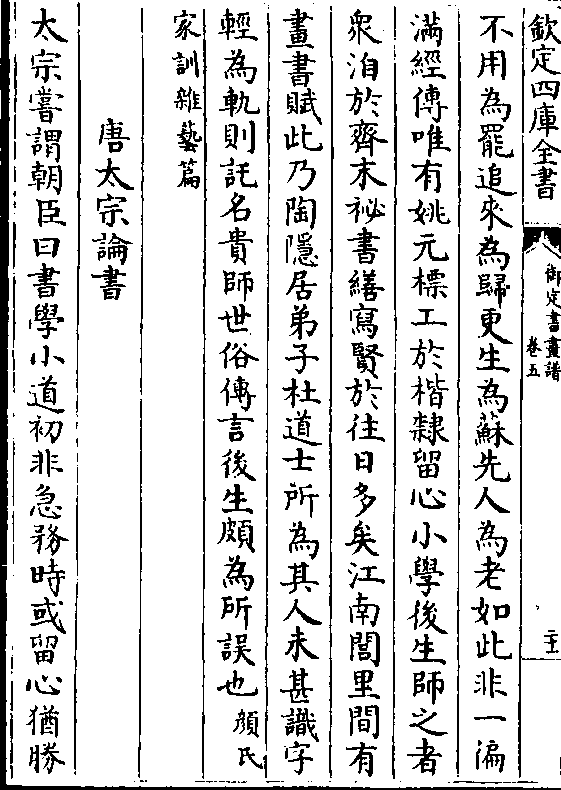 欽定四庫全書
御定書畫譜
卷五
不用為罷追來為歸更生為蘇先人為老如此非一徧
滿經傳唯有姚元標工於楷隸留心小學後生師之者
衆洎於齊末祕書繕寫賢於往日多矣江南閭里間有
畫書賦此乃陶隱居弟子杜道士所為其人未甚識字
輕為軌則託名貴師世俗傳言後生頗為所誤也顔氏
家訓雜藝篇
唐太宗論書
太宗嘗謂朝臣曰書學小道初非急務時或留心猶勝